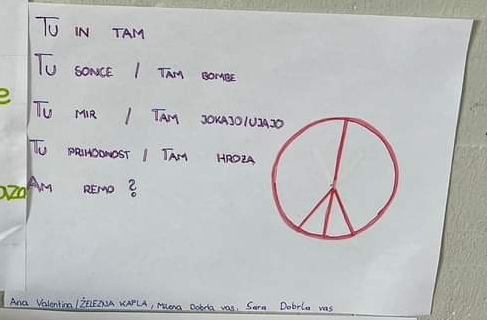 TU IN TAM
TU SONCE / TAM BOMBE
TU MIR / TAM JOKAJO/UJAJO
TU PRIHODNOST / TAM HROZA
AM REMO ?
Ana Valentina / ŽELEZNA KAPLA, Milena Dobrla vas, Sara Dobrla vas